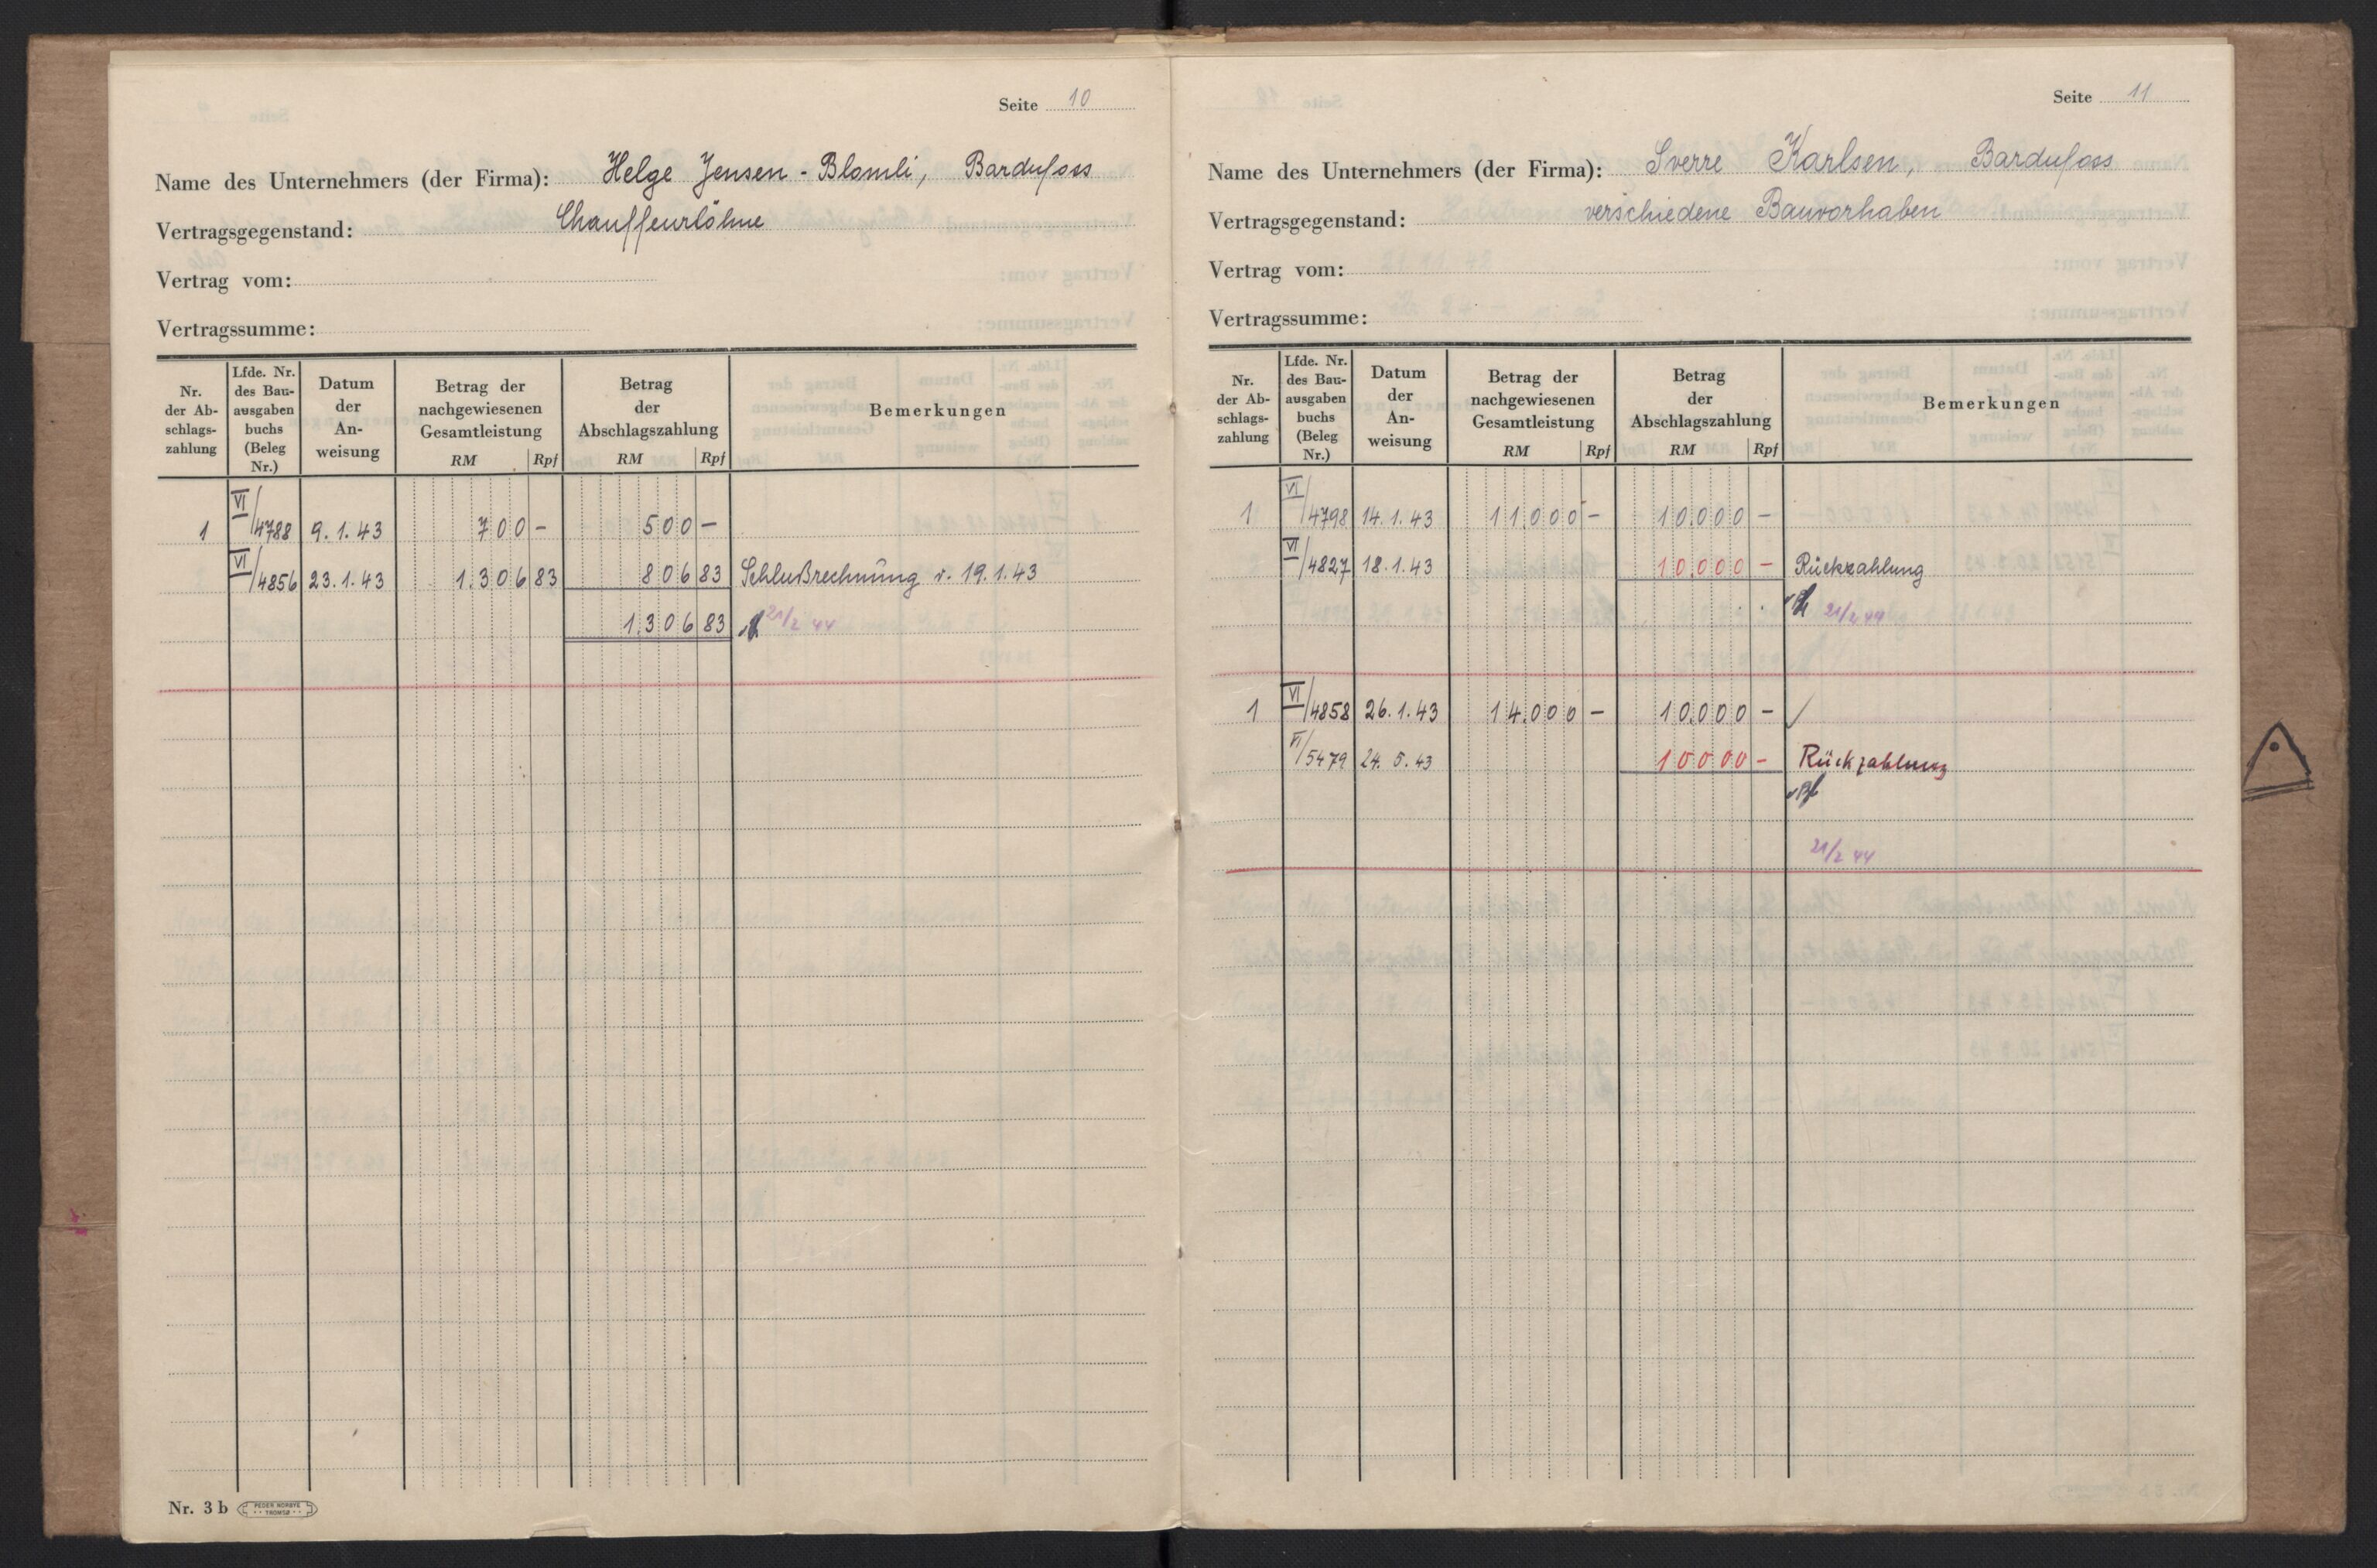 Seite 10
Name des Unternehmers (der Firma): Helge Jensen - Blomli, Bardufoss
Vertragsgegenstand: Chauffeurlöhne
Vertrag vom:
Vertragssumme:
Nr. der Abschlagszahlung | Lfde. Nr. des Bauausgabenbuchs (Beleg Nr.) | Datum der Anweisung | Betrag der nachgewiesenen Gesamtleistung RM Rpf | Betrag der Abschlagszahlung RM Rpf | Bemerkungen
1 VI/4788 9.1.43 700 - 500 -
VI/4856 23.1.43 1.306 83 806 83 Schlußrechnung v. 19.1.43
1.306 83 21/2 44
Nr. 3 b PEDER NORBYE TROMSØ
Seite 11
Name des Unternehmers (der Firma): Sverre Karlsen, Bardufoss
Vertragsgegenstand: verschiedene Bauvorhaben
Vertrag vom:
Vertragssumme:
Nr. der Abschlagszahlung | Lfde. Nr. des Bauausgabenbuchs (Beleg Nr.) | Datum der Anweisung | Betrag der nachgewiesenen Gesamtleistung RM Rpf | Betrag der Abschlagszahlung RM Rpf | Bemerkungen
1 VI/4798 14.1.43 11.000 - 10.000 -
VI/4827 18.1.43 10.000 - Rückzahlung
21/2 44
1 VI/4858 26.1.43 14.000 - 10.000 - ✓
VI/5479 24.5.43 10000 - Rückzahlung
21/2 44